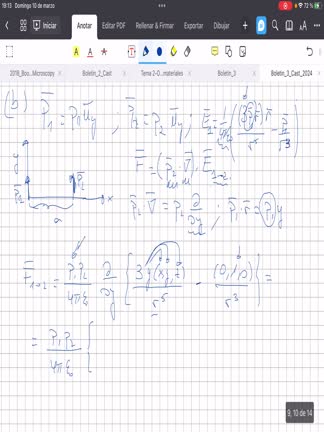 19:13 Domingo 10 de marzo
72 %
Iniciar Anotar Editar PDF Rellenar & Firmar Comprar Dibujar
2018_Boo...Microscopy Boletin_2_Cast Tema 2-O...materiales Boletin_3 Boletin_3_Cast_2024
(b) P̄₁ = P₁ ū_y ; P̄₂ = P₂ ū_y ; Ē₁ = 1/4πε₀ (3(P̄·r̄) r̄/r⁵ − P̄/r³)
F̄ = (P̄₂·∇̄)·Ē₁→₂
y P̄₁ P̄₂ x a
P̄₂·∇̄ = P₂ ∂/∂y ; P̄₁·r̄ = P₁ y
F̄₁→₂ = P₁P₂/4πε₀ ∂/∂y { 3y(x,y,z)/r⁵ − (0,1,0)/r³ } =
= P₁P₂/4πε₀ {
9, 10 de 14